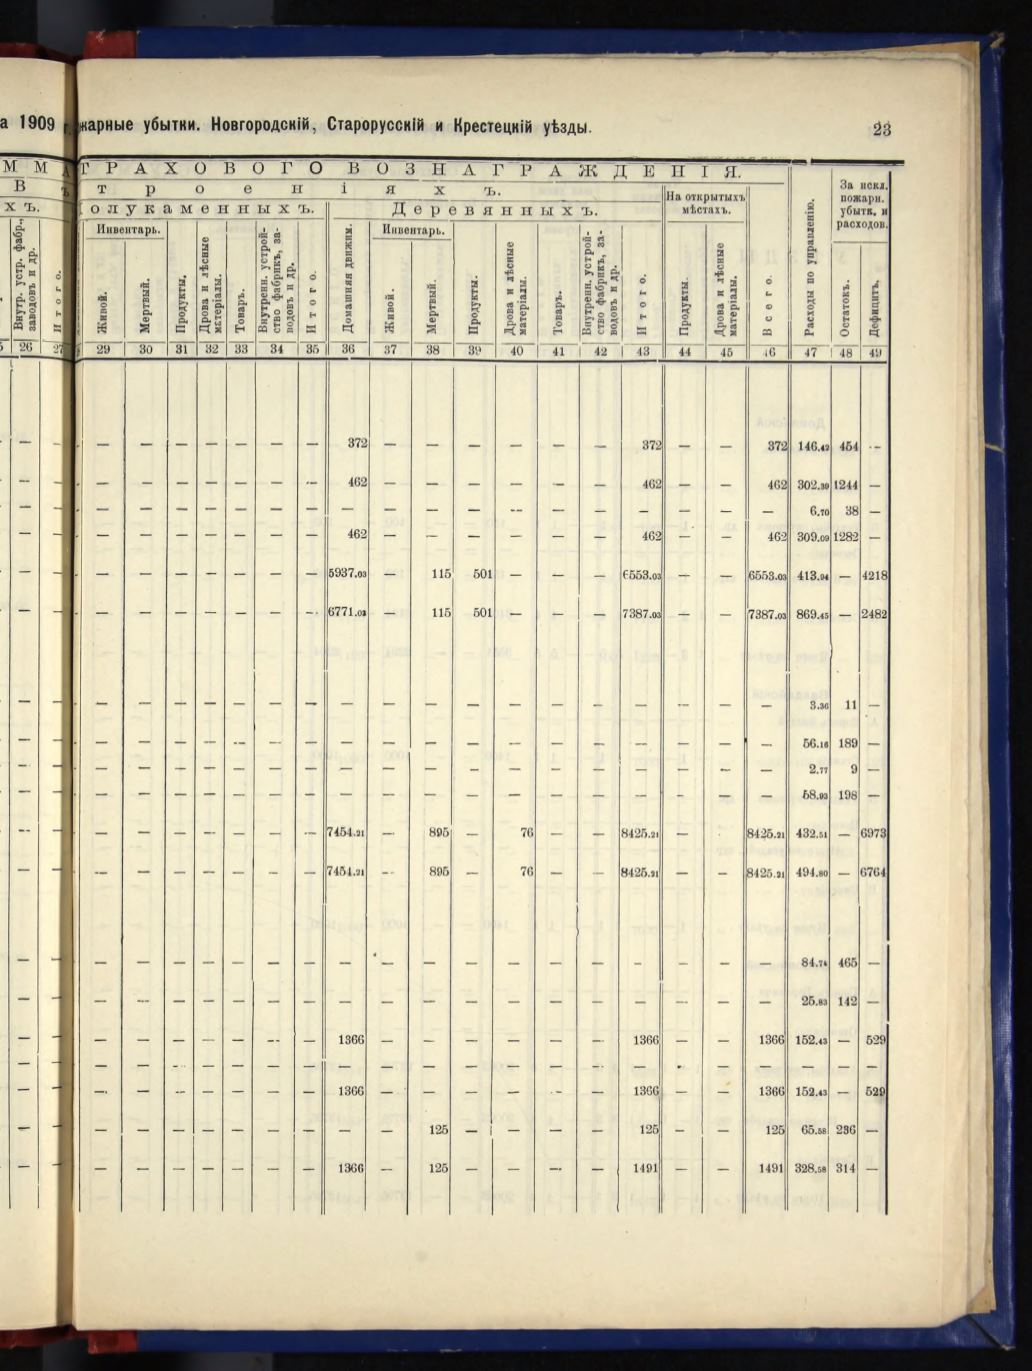 а 1909 г. жарные убытки. Новгородскій, Старорусскій и Крестецкій уѣзды. 23
М М А Т Р А Х О В О Г О В О З Н А Г Р А Ж Д Е Н І Я.
В ъ т р о е н і я х ъ. На открытыхъ мѣстахъ. Расходы по управленію. За искл. пожарн. убытк. и расходовъ.
х ъ. олукаменныхъ. Деревянныхъ.
Внутр. устр. фабр., заводовъ и др. Итого. Инвентарь. Живой. Мертвый. Продукты. Дрова и лѣсные матеріалы. Товаръ. Внутренн. устройство фабрикъ, заводовъ и др. Итого. Домашняя движим. Инвентарь. Живой. Мертвый. Продукты. Дрова и лѣсные матеріалы. Товаръ. Внутренн. устройство фабрикъ, заводовъ и др. Итого. Продукты. Дрова и лѣсные матеріалы. Всего. Остатокъ. Дефицитъ.
26 27 29 30 31 32 33 34 35 36 37 38 39 40 41 42 43 44 45 46 47 48 49
— — — — — — — — — 372 — — — — — — 372 — — 372 146.42 454 —
— — — — — — — — — 462 — — — — — — 462 — — 462 302.39 1244 —
— — — — — — — — — — — — — — — — — — — — 6.70 38 —
— — — — — — — — — 462 — — — — — — 462 — — 462 309.09 1282 —
— — — — — — — — — 5937.03 — 115 501 — — — 6553.03 — — 6553.03 413.94 — 4218
— — — — — — — — — 6771.03 — 115 501 — — — 7387.03 — — 7387.03 869.45 — 2482
— — — — — — — — — — — — — — — — — — — — 3.36 11 —
— — — — — — — — — — — — — — — — — — — — 56.16 189 —
— — — — — — — — — — — — — — — — — — — — 2.77 9 —
— — — — — — — — — — — — — — — — — — — — 58.93 198 —
— — — — — — — — — 7454.21 — 895 — 76 — — 8425.21 — — 8425.21 432.51 — 6973
— — — — — — — — — 7454.21 — 895 — 76 — — 8425.21 — — 8425.21 494.80 — 6764
— — — — — — — — — — — — — — — — — — — — 84.74 465 —
— — — — — — — — — — — — — — — — — — — — 25.83 142 —
— — — — — — — — — 1366 — — — — — — 1366 — — 1366 152.43 — 529
— — — — — — — — — — — — — — — — — — — — — — —
— — — — — — — — — 1366 — — — — — — 1366 — — 1366 152.43 — 529
— — — — — — — — — — — 125 — — — — 125 — — 125 65.58 236 —
— — — — — — — — — 1366 — 125 — — — — 1491 — — 1491 328.58 314 —